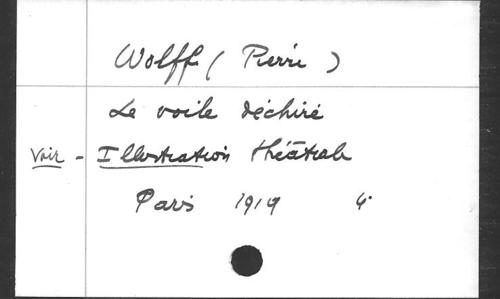 Wolff ( Pierre )
Le voile déchiré
Voir - Illustration théâtrale
Paris 1919 4°